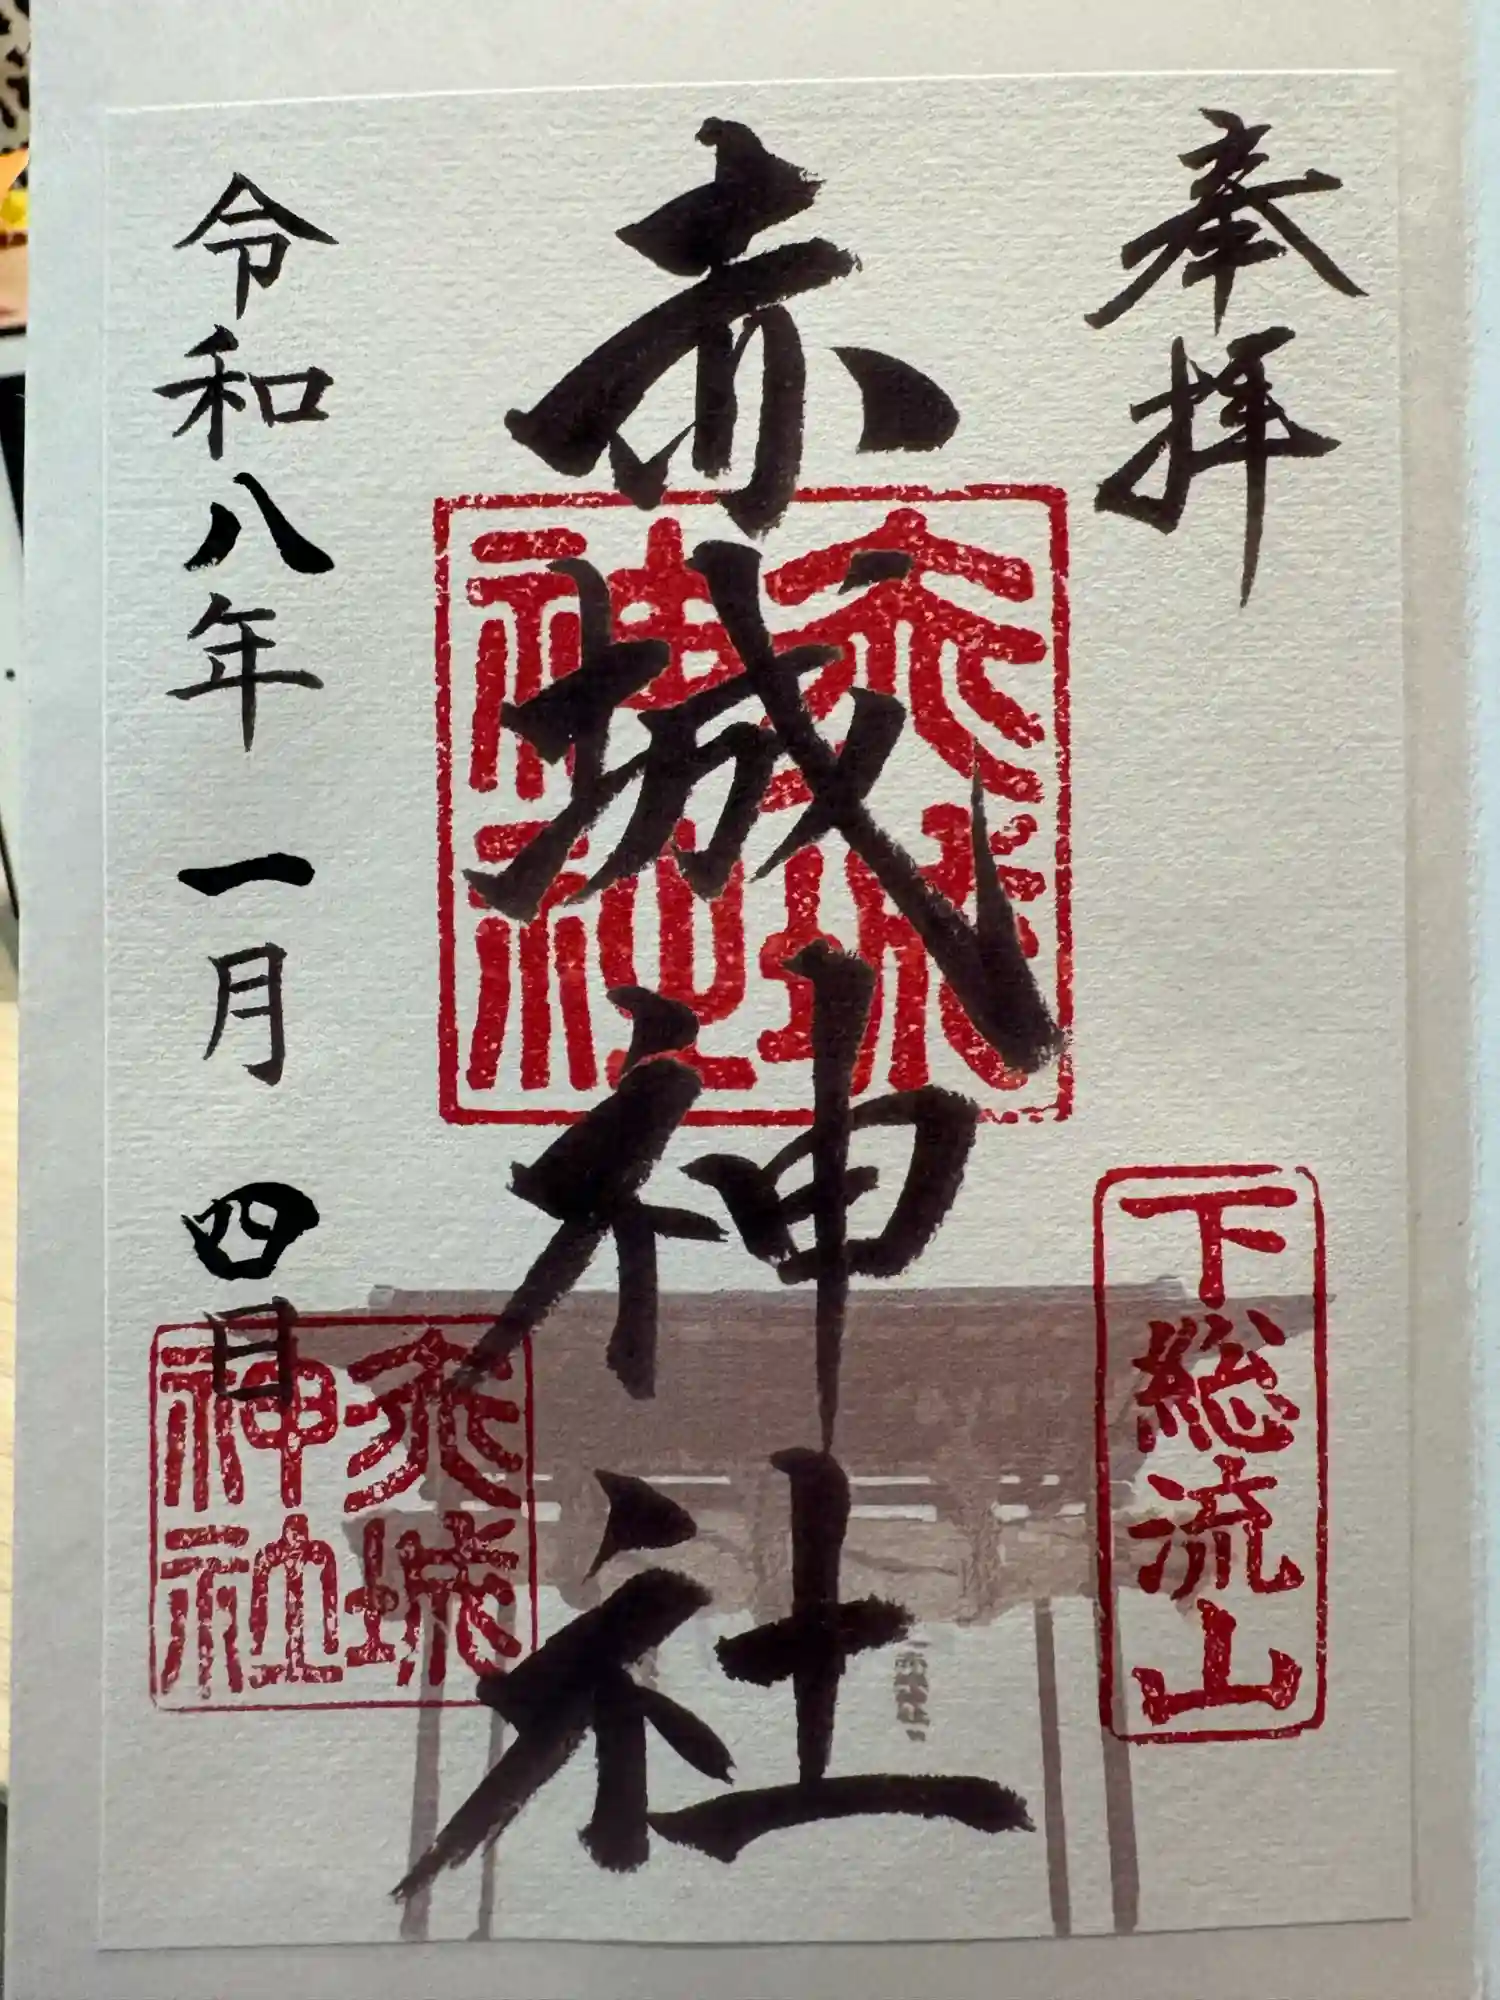 奉拝
下総流山
赤城神社
赤城神社
令和八年一月四日
赤城神社